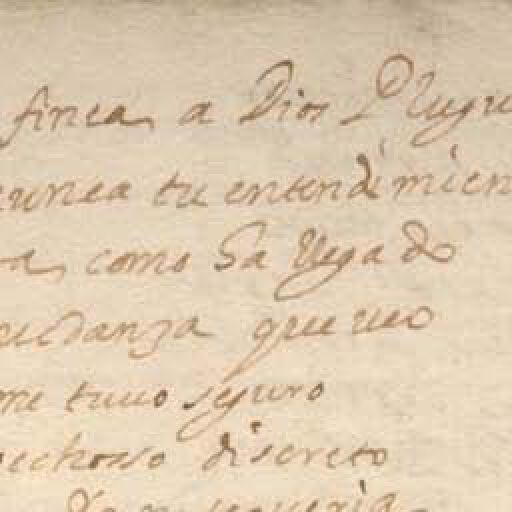 finea a Dios
nunca tu entendimien
como Sa llegado
mudanza que veo
me tuuo seguro
pechosso discreto